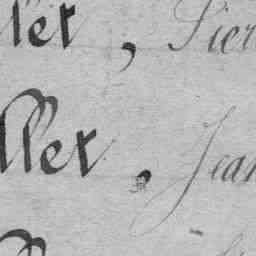 let, Pier
llet, Jean